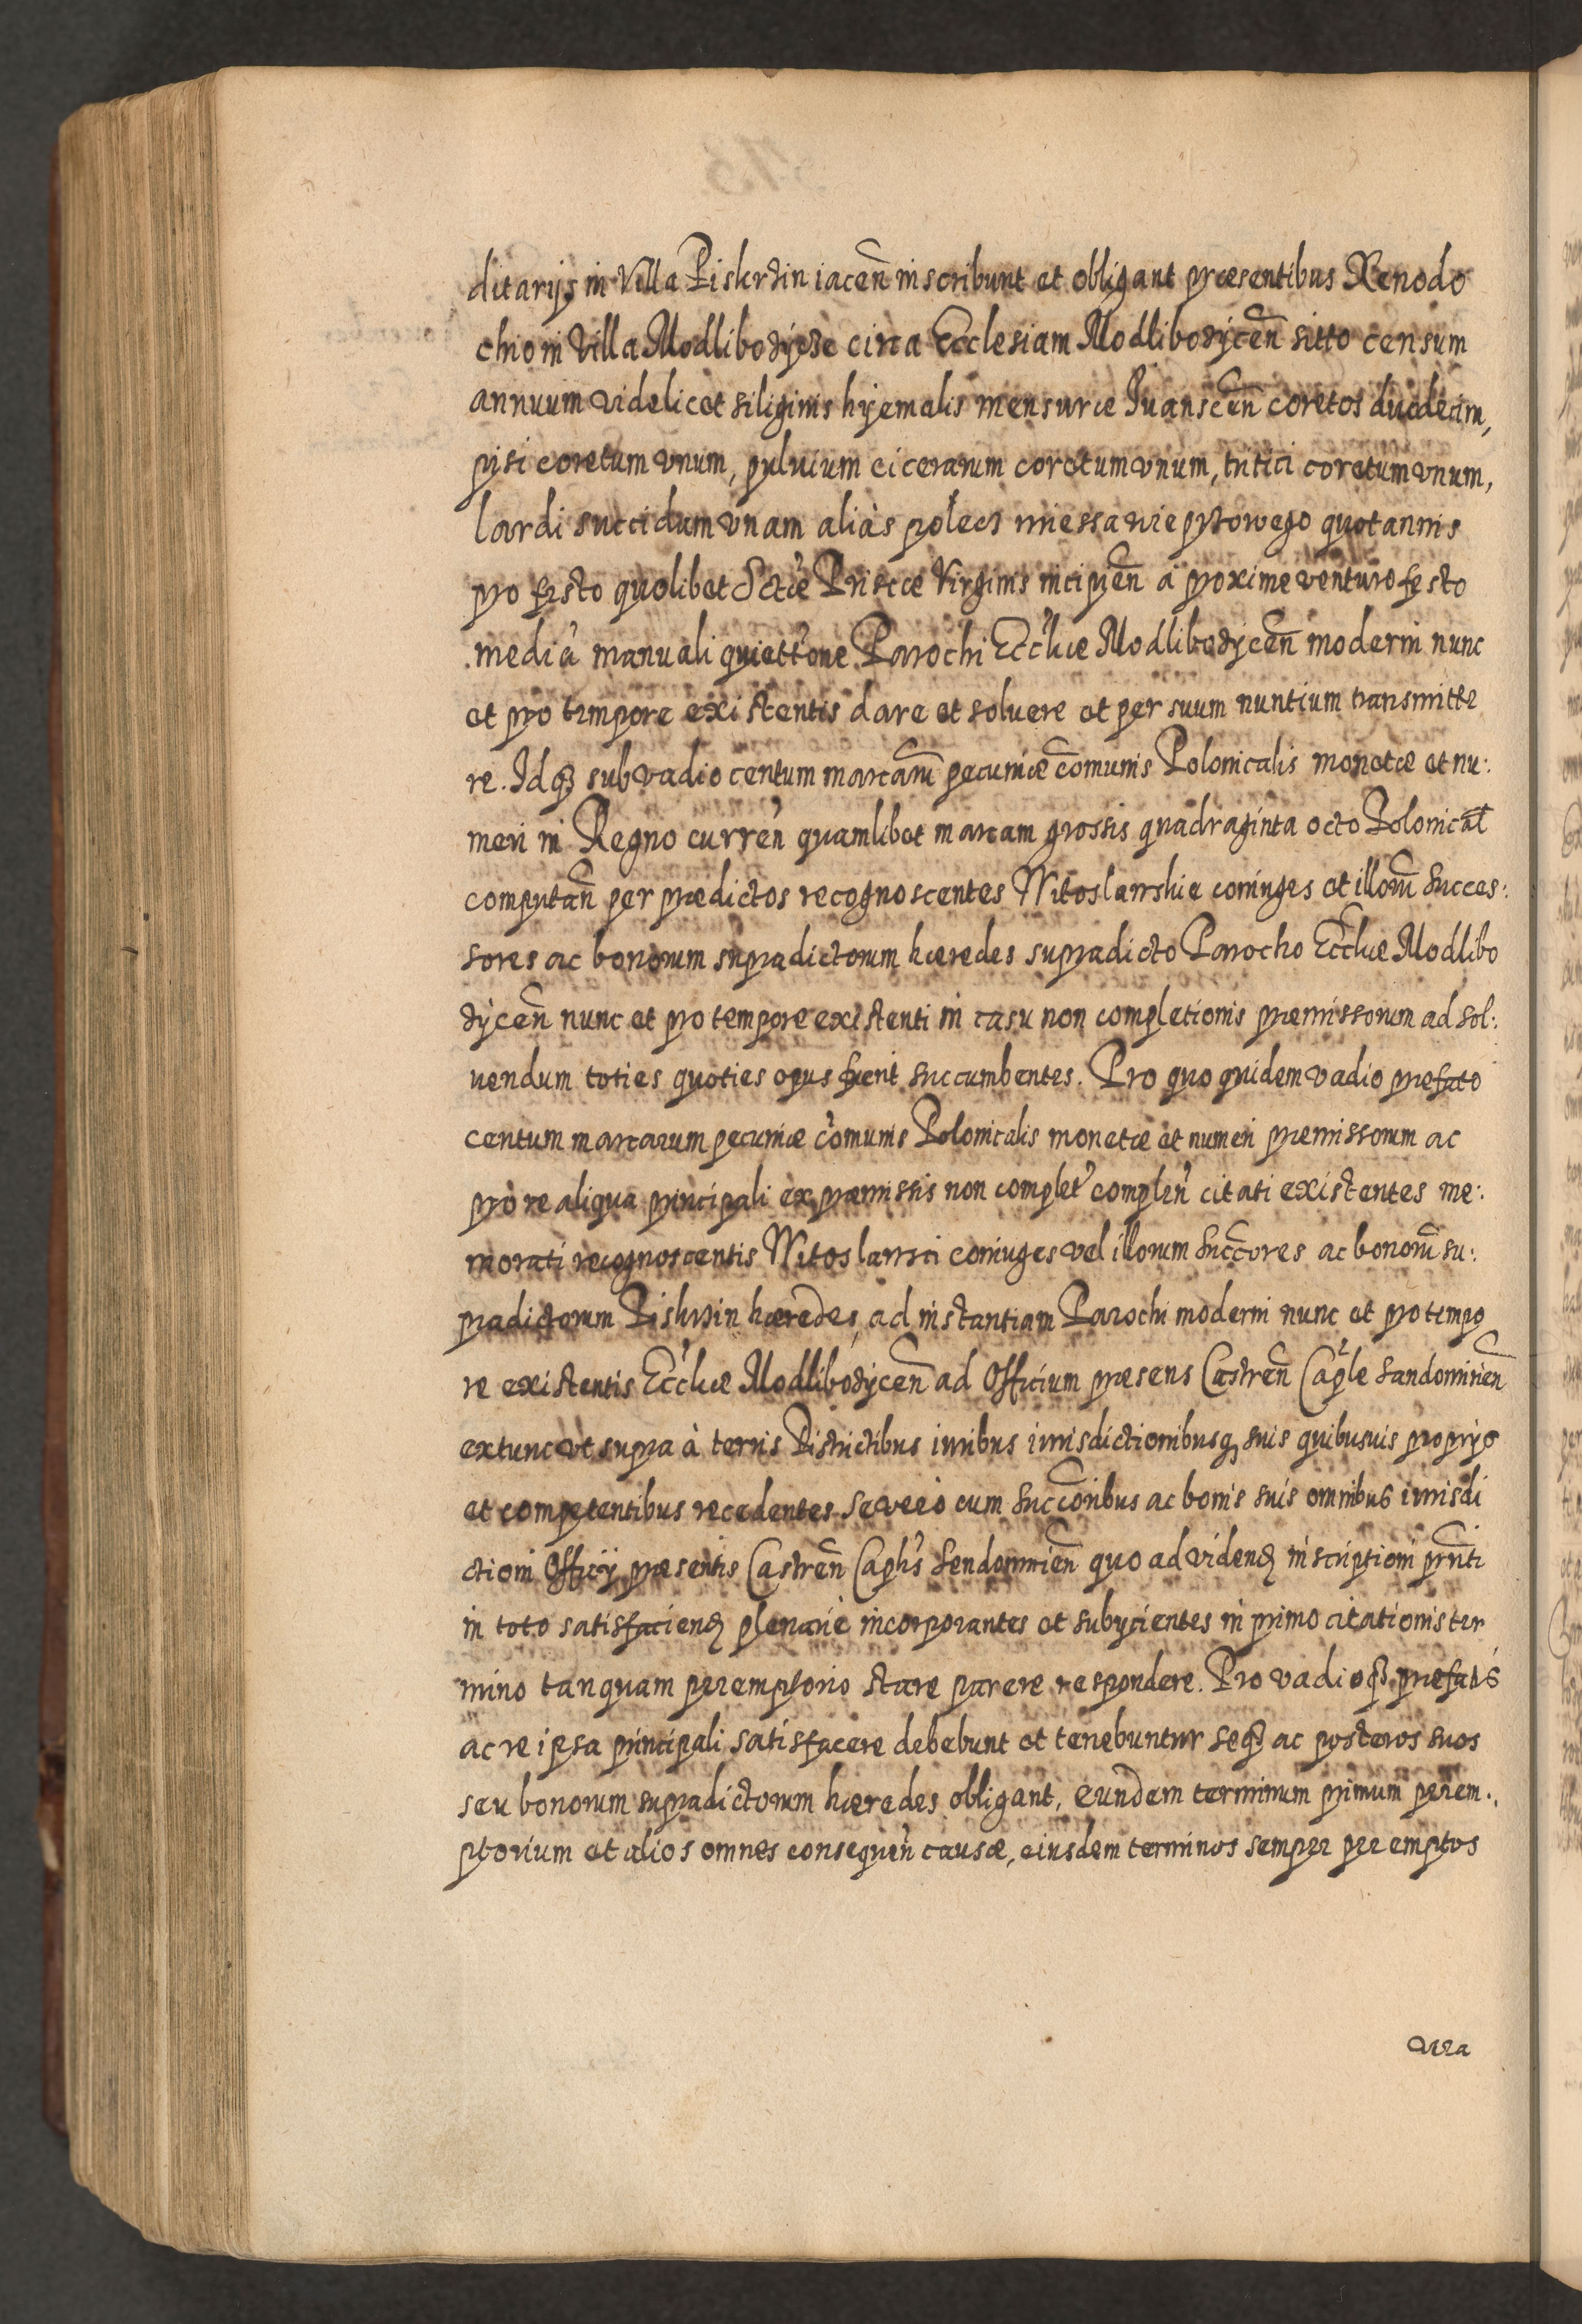 ditarijs in Villa Piskrzin iacen̄ inscribunt et obligant præsentibus Xenodo
chio in Villa Modlibozÿcze circa Ecclesiam Modlibozÿcen̄ sitto censum
annuum videlicet siliginis hÿemalis mensuræ Iuanscen̄ coretos duodecim,
pisi coretum vnum, puluium cicerarum coretum vnum, tritici coretum vnum,
lardi succidum vnam aliàs połeć miessa wieprzowego quotannis
pro festo quolibet Sctæ Priscæ Virginis incipien̄ à proxime venturo festo
mediâ manuali quiett'one Parochi Ecc'liæ Modlibozÿcen̄ moderni nunc
et pro tempore existentis dare et soluere et per suum nuntium transmitte
re. Idq3 sub vadio centum marcarū pecuniæ com̄unis Polonicalis monetæ et nu:
meri in Regno curren̄ quamlibet marcam grossis quadraginta octo Polonicał
computan̄ per prædictos recognoscentes Witosławskie coniuges et illorū succes:
sores ac bonorum supradictorum hæredes supradicto Parocho Eccliæ Modlibo
zÿcen̄ nunc et pro tempore existenti in casu non completionis præmissorum ad sol:
uendum toties quoties opus fuerit succumbentes. Pro quo quidem vadio præfato
centum marcarum pecuniæ com̄unis Polonicalis monetæ et numeri præmissorum ac
pro re aliqua principali ex præmissis non complet' complen' citati existentes me:
morati recognoscentis Witosławsci coniuges vel illorum Succ̄ores ac bonorū su:
pradictorum Piskrzin hæredes, ad instantiam Parochi moderni nunc et pro tempo
re existentis Ecc'liæ Modlibozÿcen̄ ad Officium præsens Castren̄ Cap̄le Sandomirien̄
extunc vt supra à terris Districtibus iuribus iurisdictionibusq3 suis quibusuis proprijs
et competentibus recedentes se verò cum Succ̄oribus ac bonis suis omnibus iurisdi
ctioni Officij præsentis Castren̄ Caplis Sendomirien̄ quo ad viden̄ inscriptioni prn̄ti
in toto satisfacien̄ plenariè incorporantes et subijcientes in primo citationis ter
mino tanquam peremptorio stare parere respondere. Pro vadioq3 præfato
ac re ipsa principali satisfacere debebunt et tenebuntur seq3 ac posteros suos
seu bonorum supradictorum hæredes obligant, eundem terminum primum perem:
ptorium et alios omnes consequen̄ causæ, eiusdem terminos semper peremptos